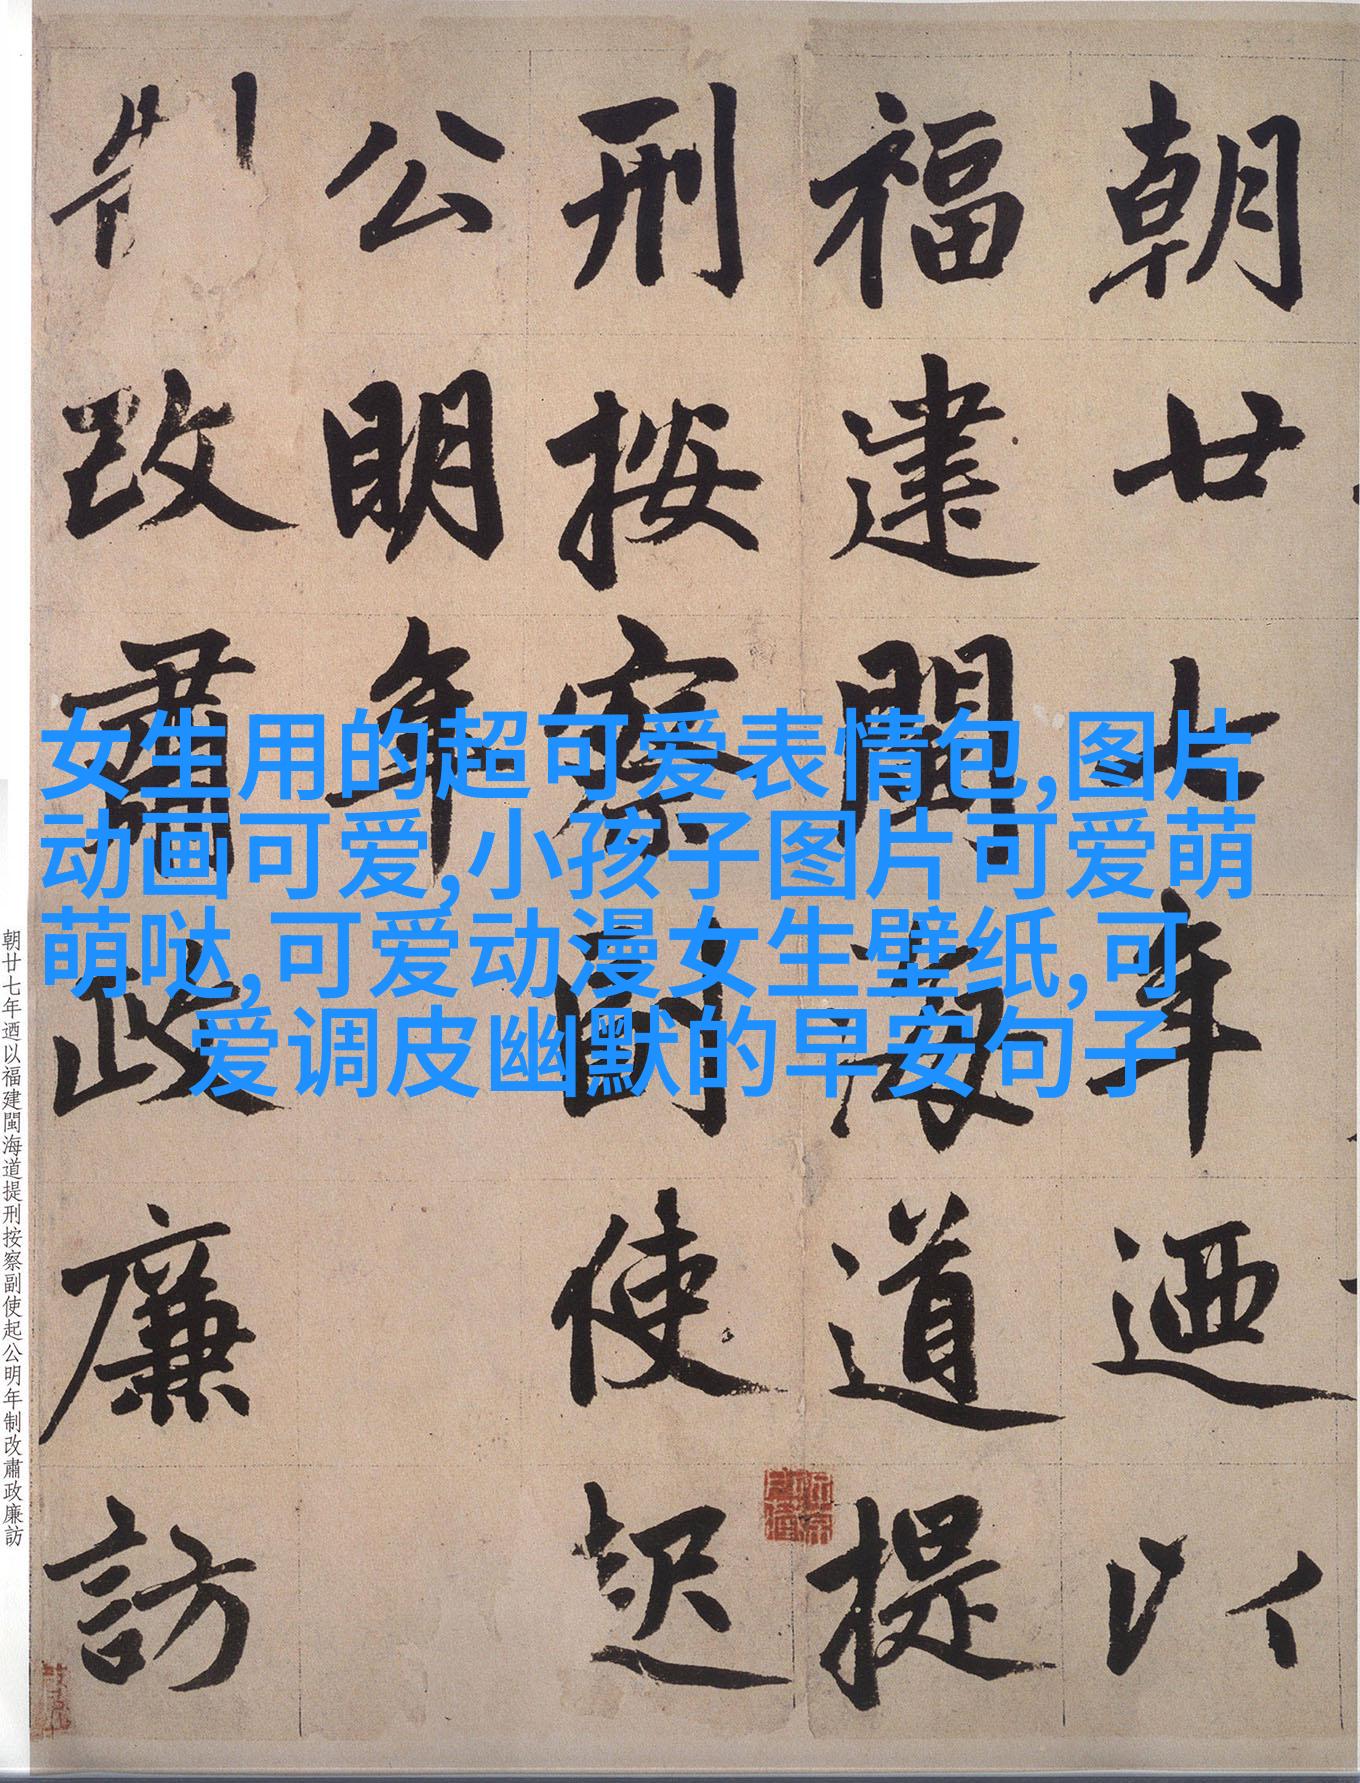 朝廿七年迺以
福建閩海道提
刑按察副使起
公明年
制改肅政廉訪
女生用的超可爱表情包,图片
动画可爱,小孩子图片可爱萌
萌哒,可爱动漫女生壁纸,可
爱调皮幽默的早安句子
朝廿七年迺以福建閩海道提刑按察副使起公明年制改肅政廉訪